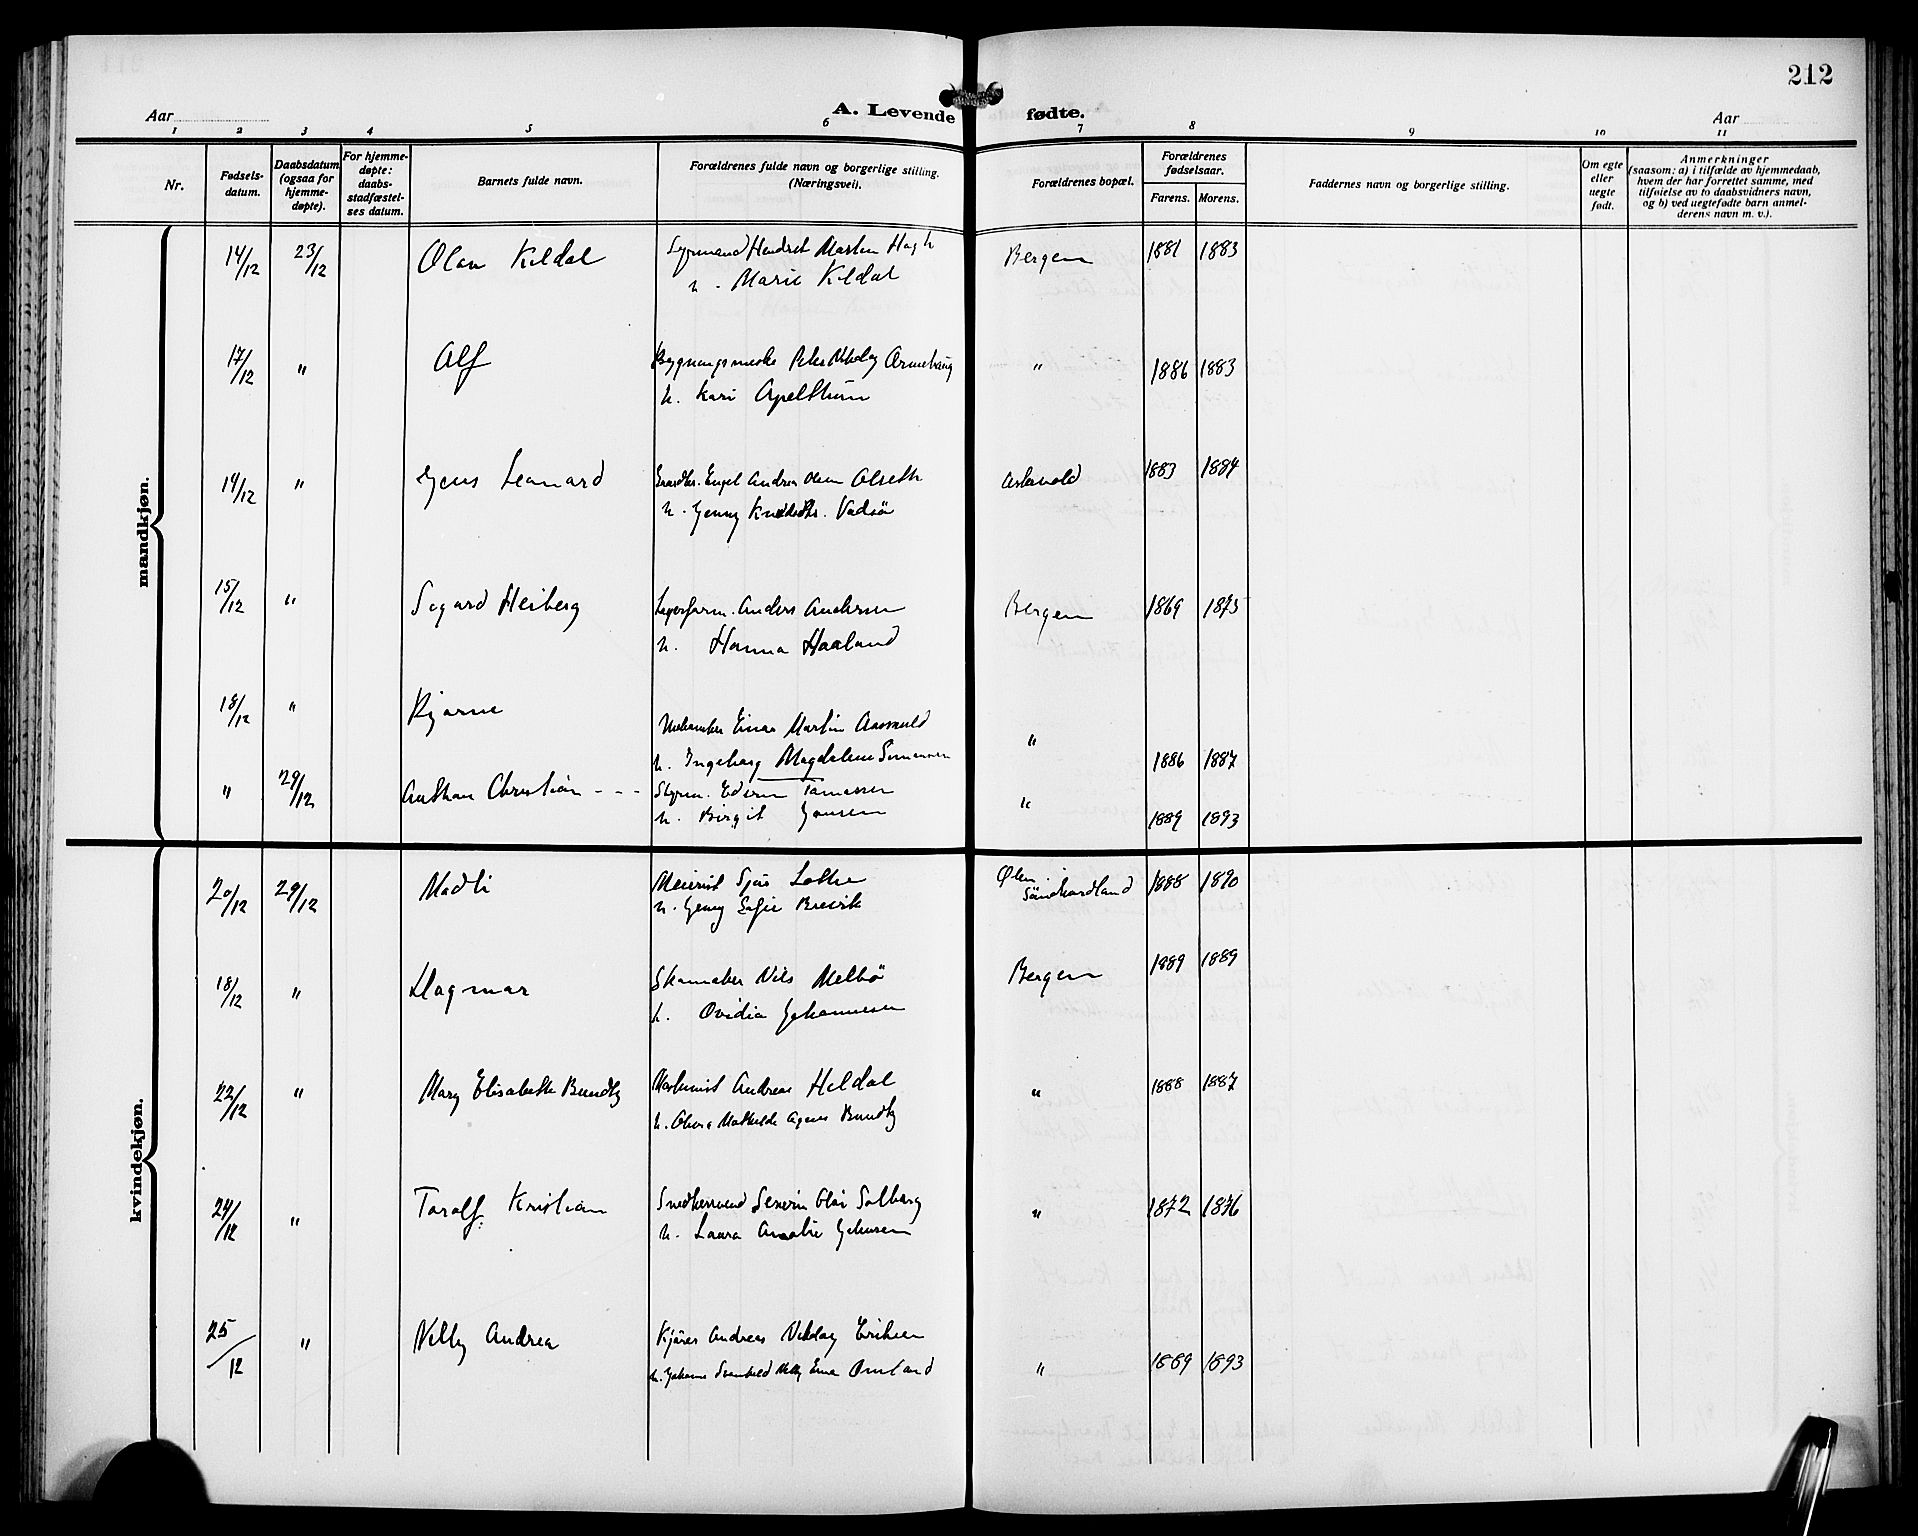 212
Aar
A. Levende
fødte.
Aar
1 2 3 4 5 6 7 8 9 10 11
Nr.
Fødsels-
datum.
Daabsdatum
(ogsaa for
hjemme-
døpte).
For hjemme-
døpte:
daabs-
stadfæstel-
ses datum.
Barnets fulde navn.
Forældrenes fulde navn og borgerlige stilling.
(Næringsvei).
Forældrenes bopæl.
Forældrenes
fødselsaar.
Farens. Morens.
Faddernes navn og borgerlige stilling.
Om egte
eller
uegte
født.
Anmerkninger
(saasom: a) i tilfælde av hjemmedaab,
hvem der har forrettet samme, med
tilføielse av to daabsvidners navn,
og b) ved uegtefødte barn anmel-
derens navn m. v.).
mandkjøn.
14/12 23/12 Olav Kildal
Marie Kildal
Bergen 1881 1883
17/12 " Alf
h. Kari Apelthun
" 1886 1883
14/12 " Jens Leonard
Engel Andrea Olsen Olseth
h. Jenny
Askevold 1883 1884
15/12 " Sigurd Heiberg
Anders Andersen
h. Hanna Haaland
Bergen 1869 1875
18/12 " Bjarne
Einar Martin
h. Ingeborg Magdalene Simonsen
" 1886 1887
" 29/12 Christian - - -
Styrm. Edvin Tomassen
h. Birgit Jensen
" 1889 1893
kvindekjøn.
20/12 29/12 Madli
Meierist Sjur Lothe
h. Jenny Sofie Brevik
Ølen
Søndhordland 1888 1890
18/12 " Dagmar
Skomaker Nils Melbø
h. Ovidia Johannesen
Bergen 1889 1889
22/12 " Mary Elisabeth Bundty
Maskinist Andreas Heldal
h. Mathilde Agnes Bundty
" 1888 1887
24/12 " Toralf Kristian
Snedkersvend Severin Olai Solberg
h. Laura Amalie Johnsen
" 1872 1876
25/12 " Nelly Andrea
Kjører Andreas Nikolay Eriksen
h. Johanne Svanhild Nelly Omland
" 1889 1893